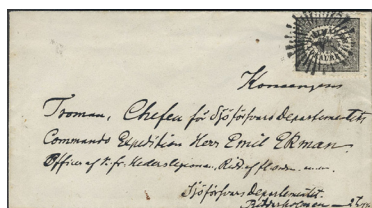 Konungens
Troman, Chefen för Sjöförsvars Departementets
Commando Expedition Herr Emil Ekman
Officer af K. fr. Hederslegionen, Ridd. af fl. orden. m.m.
Sjöförsvars Departementet
Riddarholmen